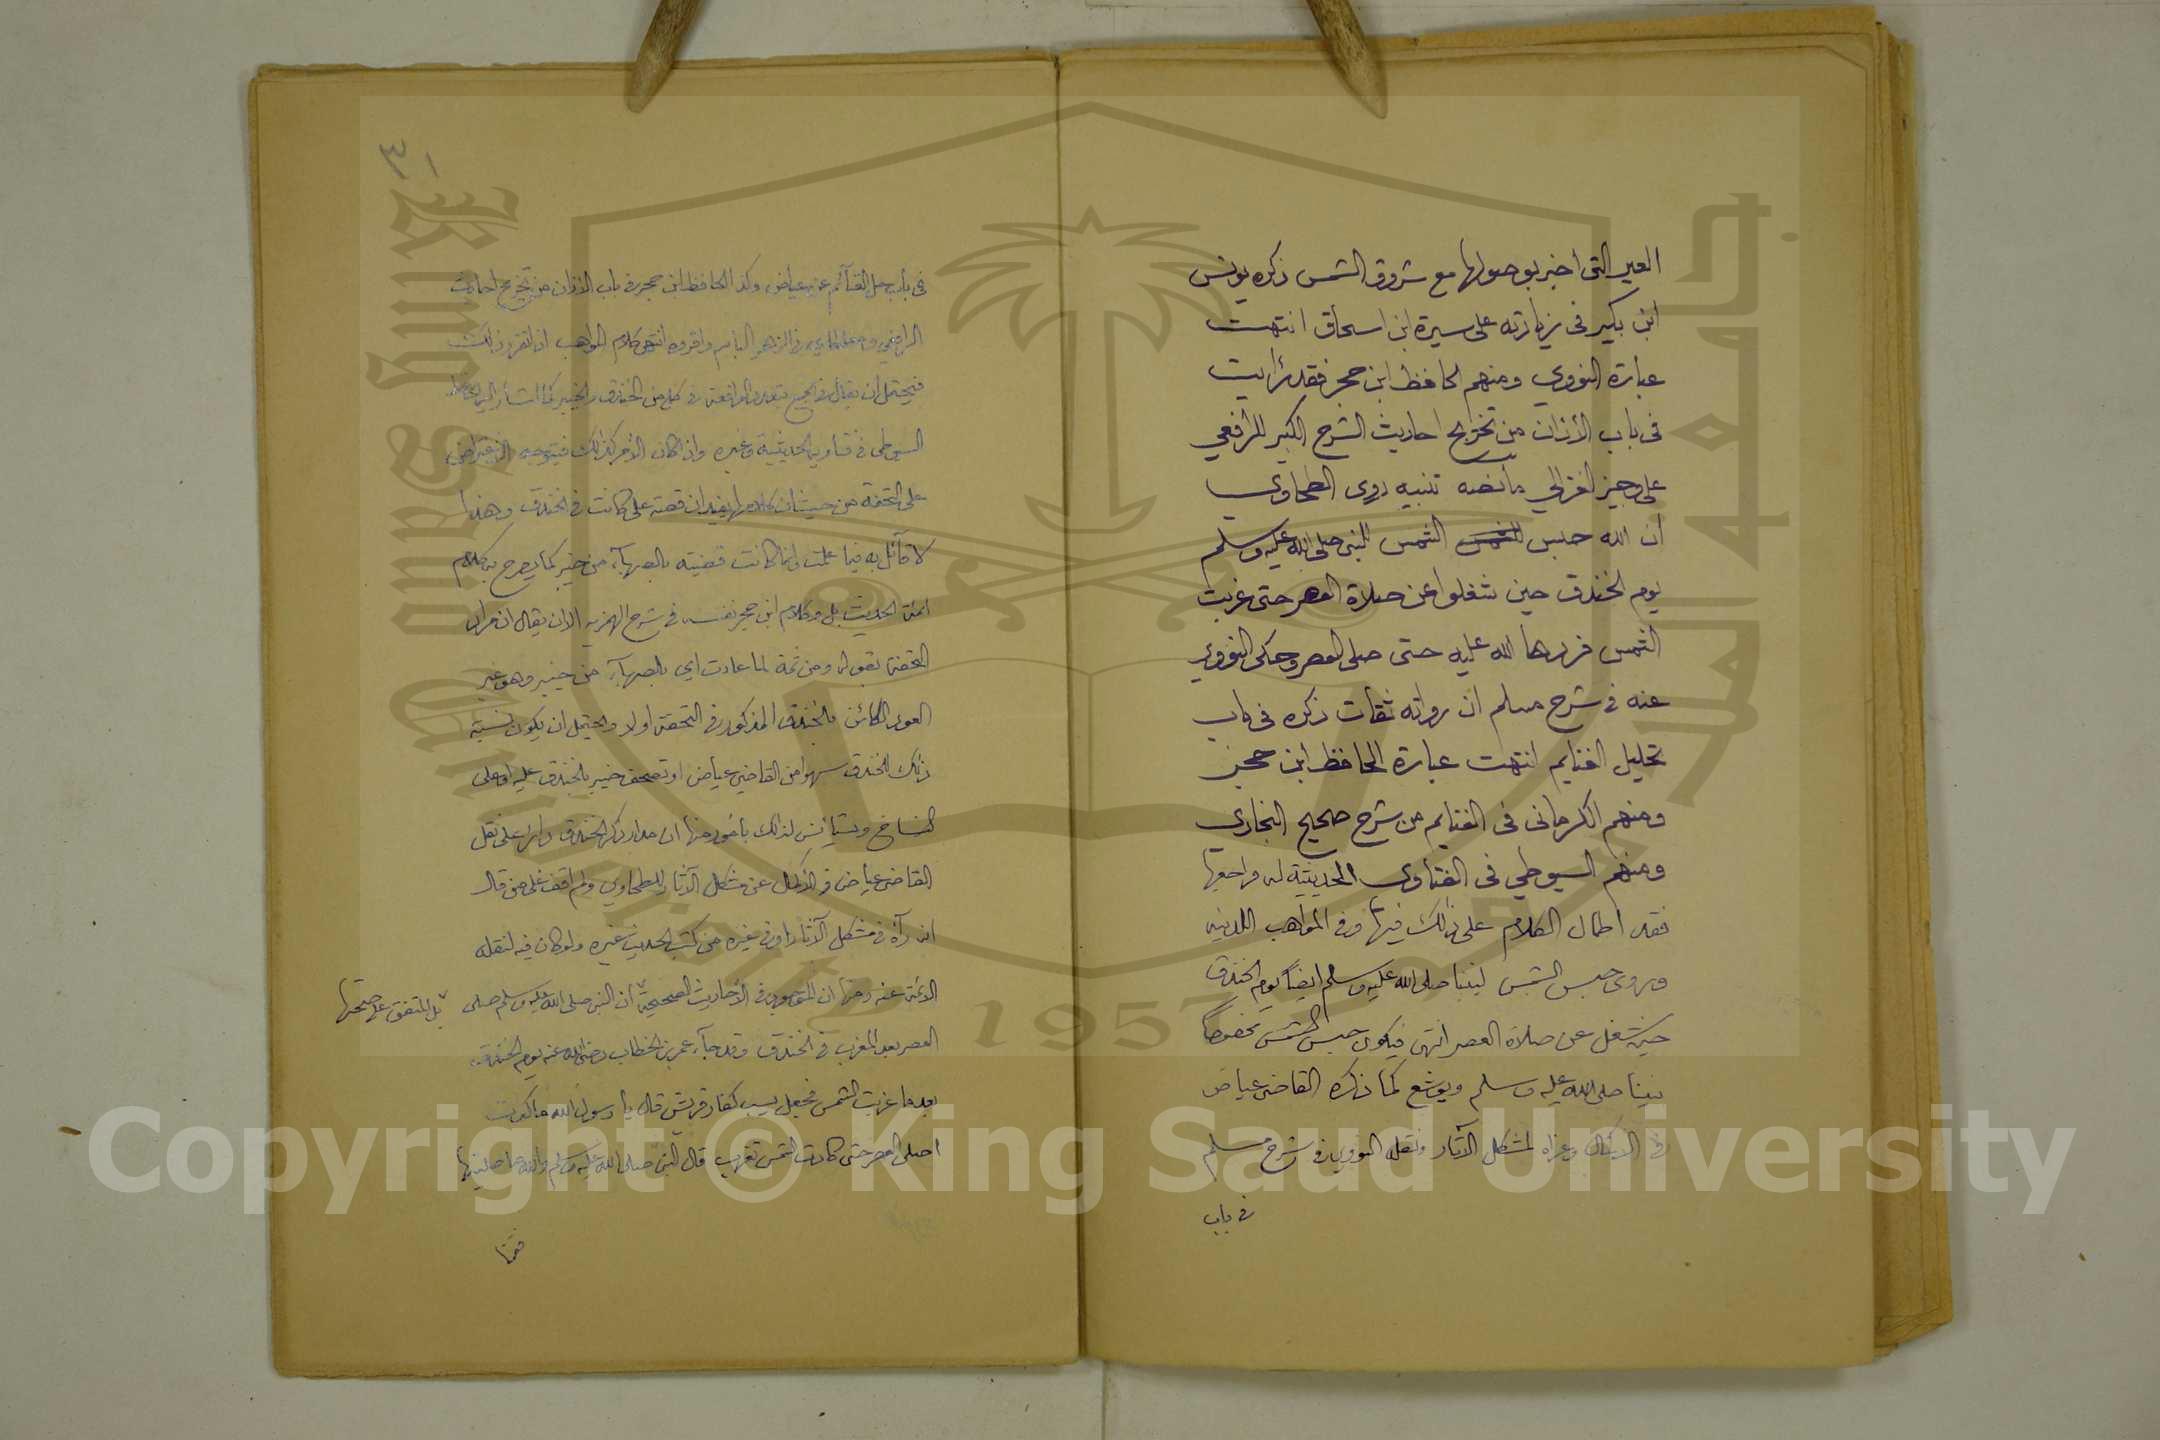 العير التى اخبر بوصولها مع شروق الشمس ذكره يونس
ابن بكير فى زيادته على سيرة ابن اسحاق انتهت
عبارة النووي ومنهم الحافظ ابن حجر فقد رأيت
فى باب الأذان من تخريج احاديث الشرح الكبير للرافعي
على وجيز الغزالي ما نصه تنبيه روى الطحاوي
ان الله حبس الشمس للنبى صلى الله عليه وسلم
يوم الخندق حين شغلوا عن صلاة العصر حتى غربت
الشمس فردها الله عليه حتى صلى العصر وحكى النووي
عنه فى شرح مسلم ان رواته ثقات ذكره فى باب
تحليل الغنايم انتهت عبارة الحافظ ابن حجر
ومنهم الكرمانى فى الغنايم من شرح صحيح البخاري
ومنهم السيوطي فى الفتاوى الحديثية له فراجعها
فقد اطال الكلام على ذلك فيها وفى المواهب اللدنيه
وروى حبس الشمس لنبينا صلى الله عليه وسلم ايضاً يوم الخندق
حين شغل عن صلاة العصر انتهى فيكون حبس الشمس مخصوصاً
نبينا صلى الله عليه وسلم ويوشع كما ذكره القاضى عياض
فى الاكمال وعزاه لمشكل الآثار ونقله النووي فى شرح مسلم
فى باب
٣١
فى باب حل الغنآئم عن عياض وكذا الحافظ ابن حجر فى باب الاذان من تخريج احاديث
الرافعي ومغلطاي فى الزهر الباسم واقروه انتهى كلام المواهب اذا تقرر ذلك
فيحتمل ان يقال فى الجمع بتعدد الواقعة فى كل من الخندق وخيبر كما اشار اليه الحافظ
السيوطى فى فتاويه الحديثية وغيره وان كان الأمر كذلك فيتوجه الاعتراض
على التحفة من حيث ان كلامها يفيد ان قصة على كانت فى الخندق وهذا
لا قآئل به فيما علمت وانما كانت قضيته بالصهبآء من خيبر كما يصرح به كلام
ائمة الحديث بل وكلام ابن حجر نفسه فى شرح الهمزيه الا ان يقال ان مراد
التحفة بقوله ومن ثمة لما عادت اي بالصهبآء من خيبر وهو غير
العود الكائن بالخندق المذكور فى التحفة اولا ويحتمل ان يكون نسبة
ذلك للخندق سهوا من القاضي عياض او تصحف خيبر بالخندق عليه او على
النساخ ويستأنس لذلك بامور منها ان مدار ذكر الخندق دائر على نقل
القاضى عياض فى الاكمال عن مشكل الآثار للطحاوي ولم اقف على من قال
انه رآه فى مشكل الآثار او فى غيره من كتب الحديث غيره ولو كان فيه لنقله
الائمة عنه ومنها ان الموجود فى الأحاديث الصحيحة ان النبى صلى الله عليه وسلم صلى
بل المتفق على صحتها
العصر بعد المغرب فى الخندق وقد جآء عمر بن الخطاب رضى الله عنه يوم الخندق
بعد ما غربت الشمس فجعل يسب كفار قريش قال يا رسول الله ما كدت
اصلى العصر حتى كادت الشمس تغرب قال النبى صلى الله عليه وسلم والله ما صليتها
فقمنا
King Saud University
جامعة الملك سعود
1957
Copyright © King Saud University